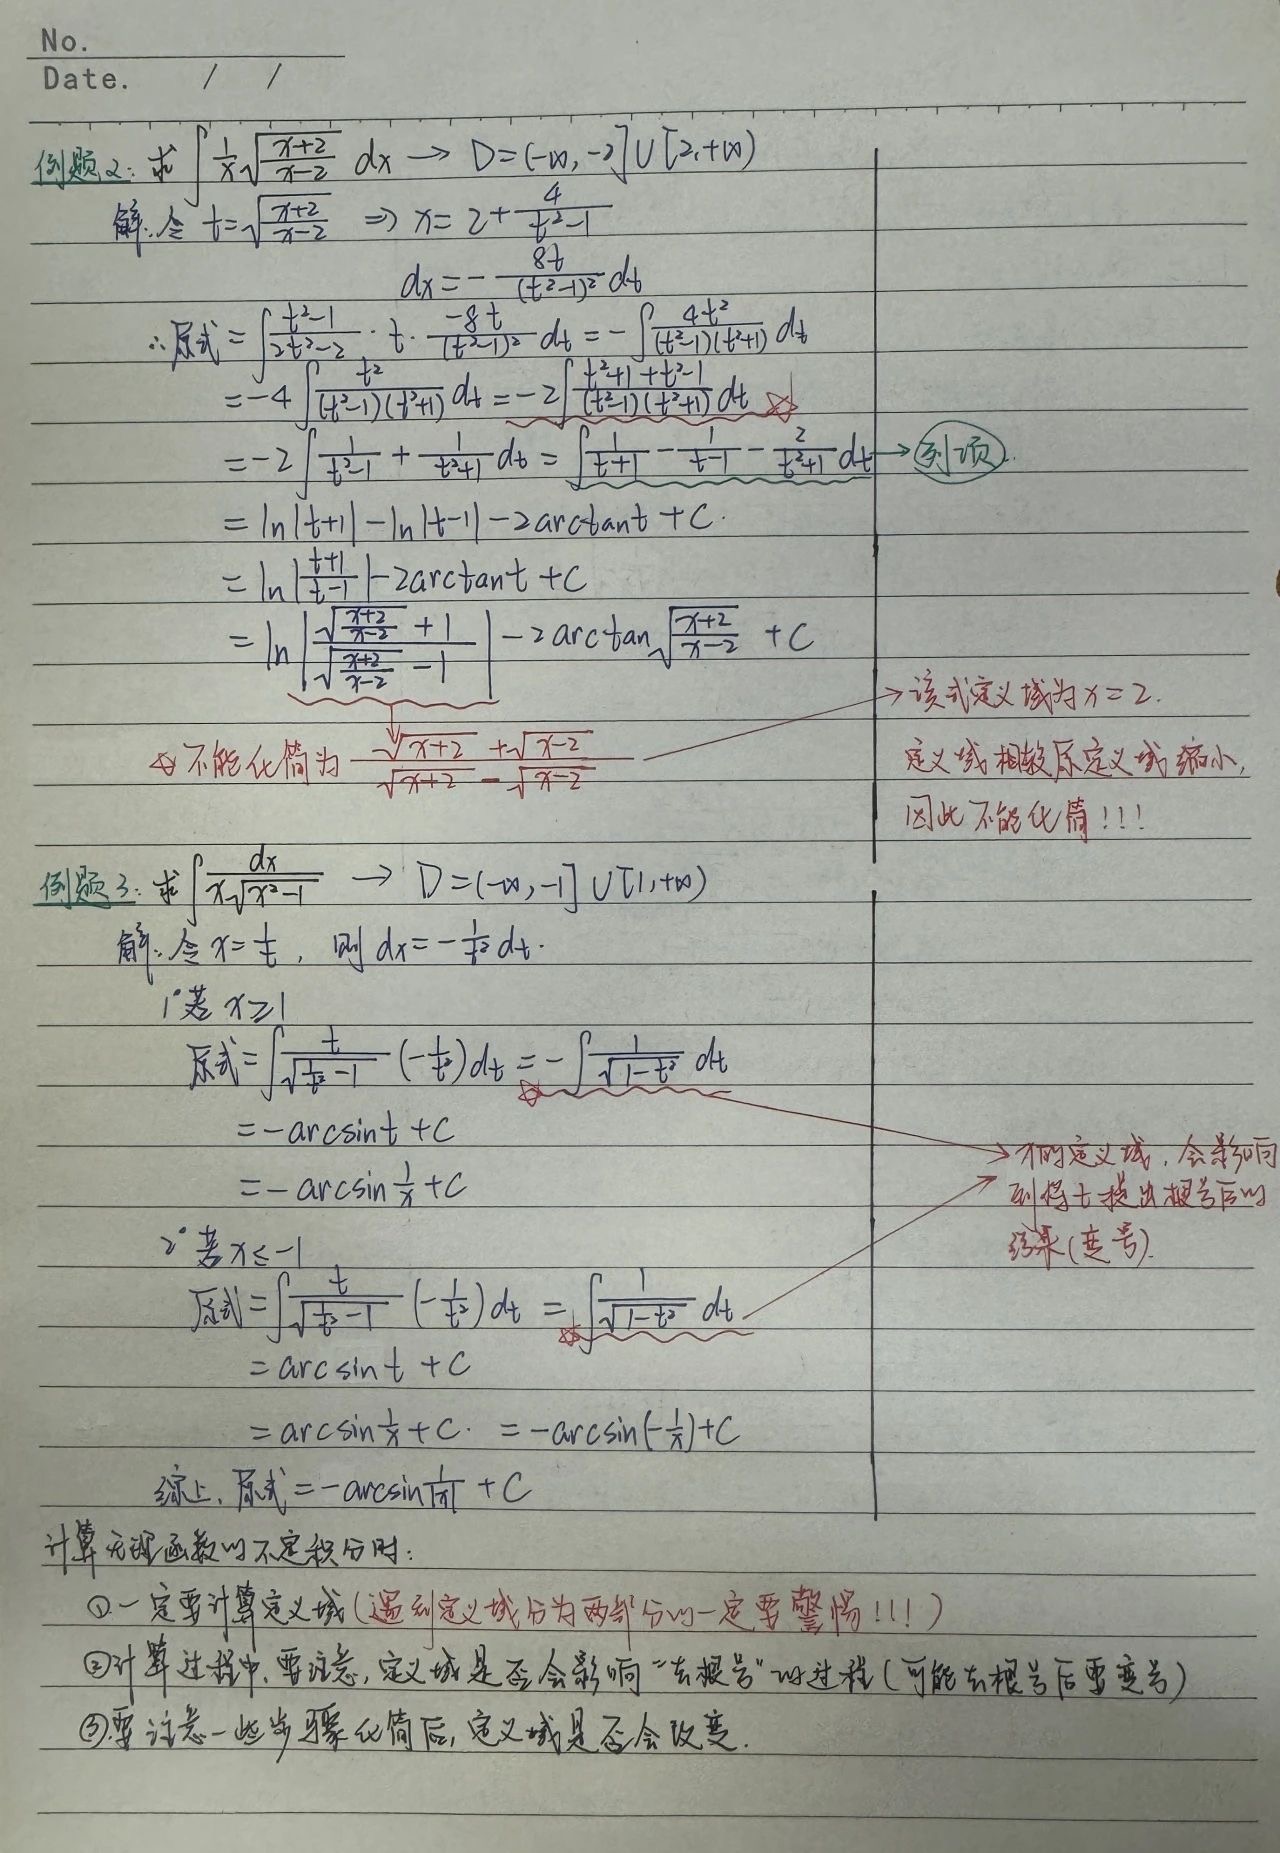 No.
Date. / /
例题2: 求 ∫ 1/x √((x+2)/(x-2)) dx → D=(-∞,-2]∪[2,+∞)
解:令 t=√((x+2)/(x-2)) ⇒ x=2+4/(t²-1)
dx=-8t/(t²-1)² dt
∴原式=∫(t²-1)/(2t²-2)·t·(-8t)/(t²-1)² dt=-∫4t²/((t²-1)(t²+1)) dt
=-4∫t²/((t²-1)(t²+1)) dt=-2∫(t²+1+t²-1)/((t²-1)(t²+1)) dt ☆
=-2∫1/(t²-1)+1/(t²+1) dt=∫1/(t+1)-1/(t-1)-2/(t²+1) dt → 列项.
=ln|t+1|-ln|t-1|-2arctant+C.
=ln|(t+1)/(t-1)|-2arctant+C
=ln|(√((x+2)/(x-2))+1)/(√((x+2)/(x-2))-1)|-2arctan√((x+2)/(x-2))+C
☆不能化简为 (√(x+2)+√(x-2))/(√(x+2)-√(x-2))
→该式定义域为x=2.
定义域相较原定义域缩小,
因此不能化简!!!
例题3: 求∫dx/(x√(x²-1)) → D=(-∞,-1]∪[1,+∞)
解:令x=1/t, 则dx=-1/t² dt.
1°若x≥1
原式=∫t/√(1/t²-1) (-1/t²)dt=-∫1/√(1-t²) dt
☆
=-arcsint+C
=-arcsin1/x+C
→x的定义域,会影响
到将t提出根号后的
结果(变号).
2°若x≤-1
原式=∫t/√(1/t²-1) (-1/t²)dt=∫1/√(1-t²) dt
☆
=arcsint+C
=arcsin1/x+C. =-arcsin(-1/x)+C
综上,原式=-arcsin1/|x|+C
计算无理函数的不定积分时:
①一定要计算定义域(遇到定义域分为两部分的一定要警惕!!!)
②计算过程中,要注意,定义域是否会影响“去根号”的过程(可能去根号后要变号)
③要注意一些步骤化简后,定义域是否会改变.